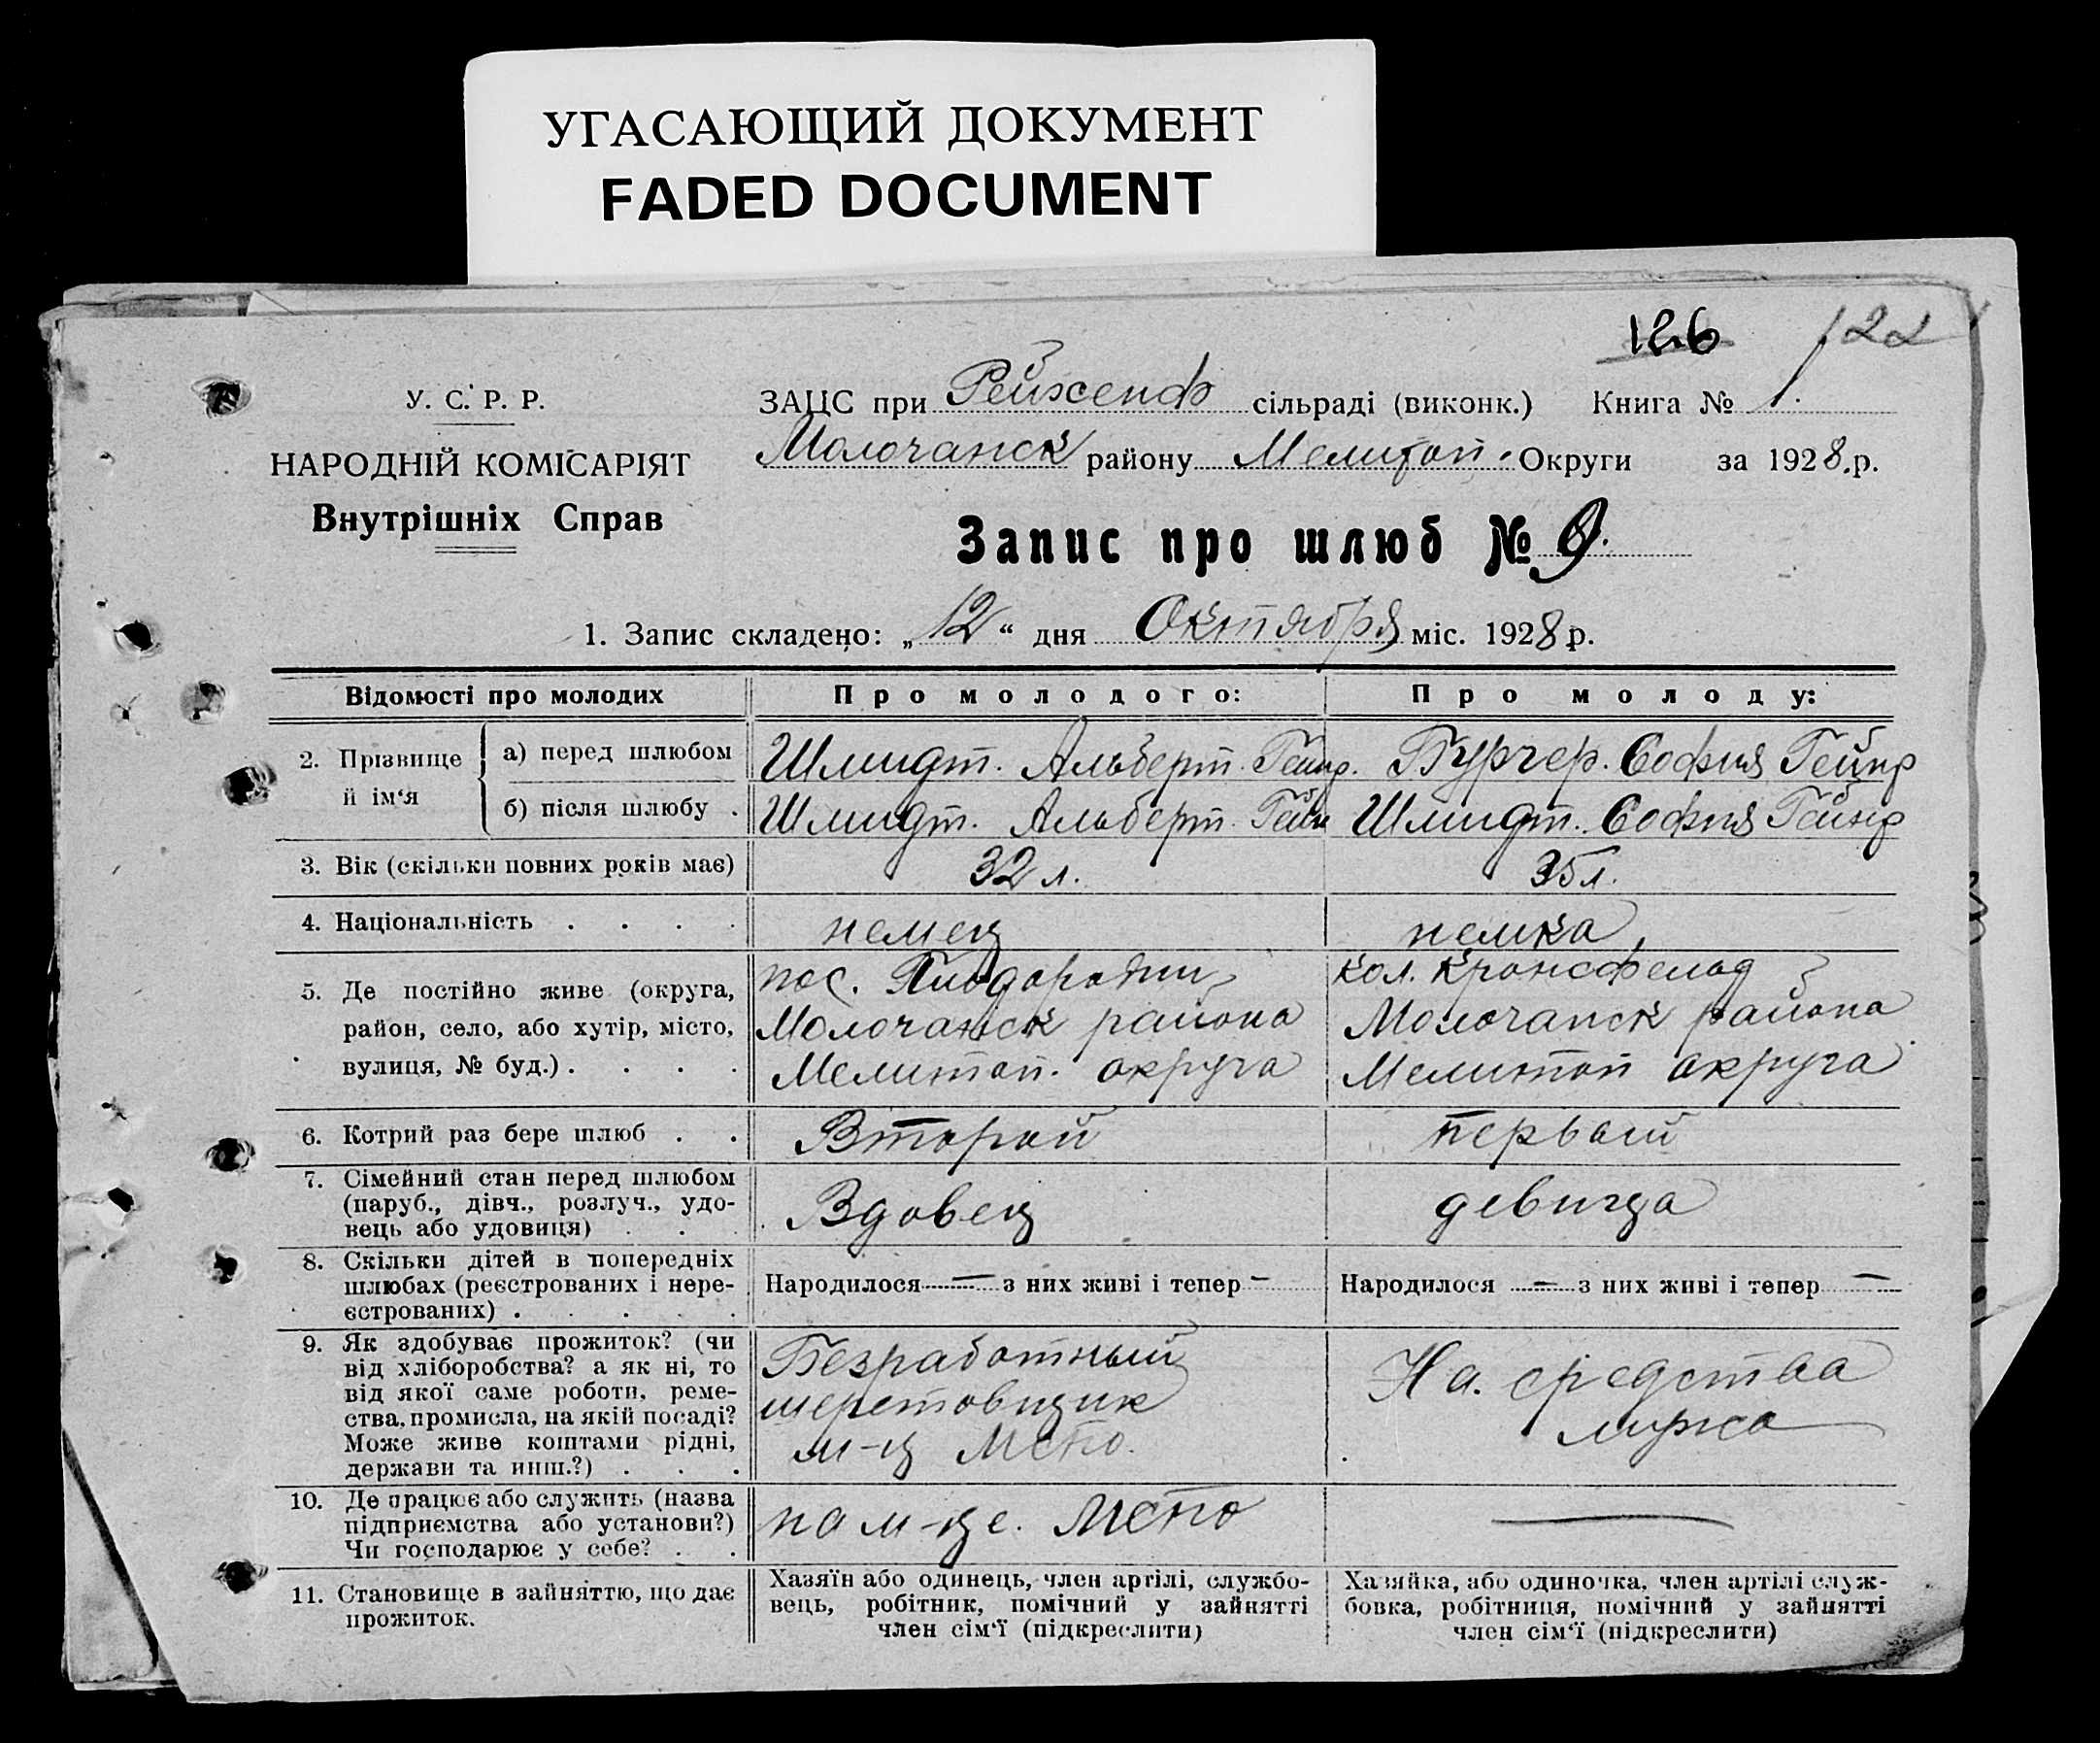 УГАСАЮЩИЙ ДОКУМЕНТ
FADED DOCUMENT
126 122
У. С. Р. Р.
НАРОДНІЙ КОМІСАРІЯТ
Внутрішніх Справ
ЗАЦС при сільраді (виконк.) Книга № 1.
Молочанск району Мелитоп. Округи за 1928.р.
Запис про шлюб № 9.
1. Запис складено: „12“ дня Октября міс. 1928 р.
Відомості про молодих Про молодого: Про молоду:
2. Прізвище й ім‘я
а) перед шлюбом Шмидт. Альберт. Гейнр. Бурчер. София Гейнр
б) після шлюбу . Шмидт. Альберт Гейн Шмидт. София Гейнр
3. Вік (скільки повних років має) 32 л. 35 л.
4. Національність . . . . немец немка,
5. Де постійно живе (округа, район, село, або хутір, місто, вулиця, № буд.) . . . .
пос.
Молочанск района
Мелитоп. округа
кол. Кронсфельд
Молочанск района
Мелитоп округа
6. Котрий раз бере шлюб . . Второй первый
7. Сімейний стан перед шлюбом
(паруб., дівч., розлуч., удо-
вець або удовиця) . . .
Вдовец девица
8. Скільки дітей в попередніх
шлюбах (реєстрованих і нере-
єстрованих) . . . . .
Народилося — з них живі і тепер — Народилося — з них живі і тепер —
9. Як здобуває прожиток? (чи
від хліборобства? а як ні, то
від якої саме роботи, реме-
ства, промисла, на якій посаді?
Може живе коштами рідні,
держави та инш.?) . . .
Безработный
шерстовщик
м-ц
На. средства
мужа
10. Де працює або служить (назва
підприємства або установи?)
Чи господарює у себе? . .
на м-це. —
11. Становище в зайняттю, що дає
прожиток.
Хазяїн або одинець, член артілі, службо-
вець, робітник, помічний у зайнятті
член сім‘ї (підкреслити)
Хазяйка, або одиночка, член артілі служ-
бовка, робітниця, помічний у зайнятті
член сім‘ї (підкреслити)